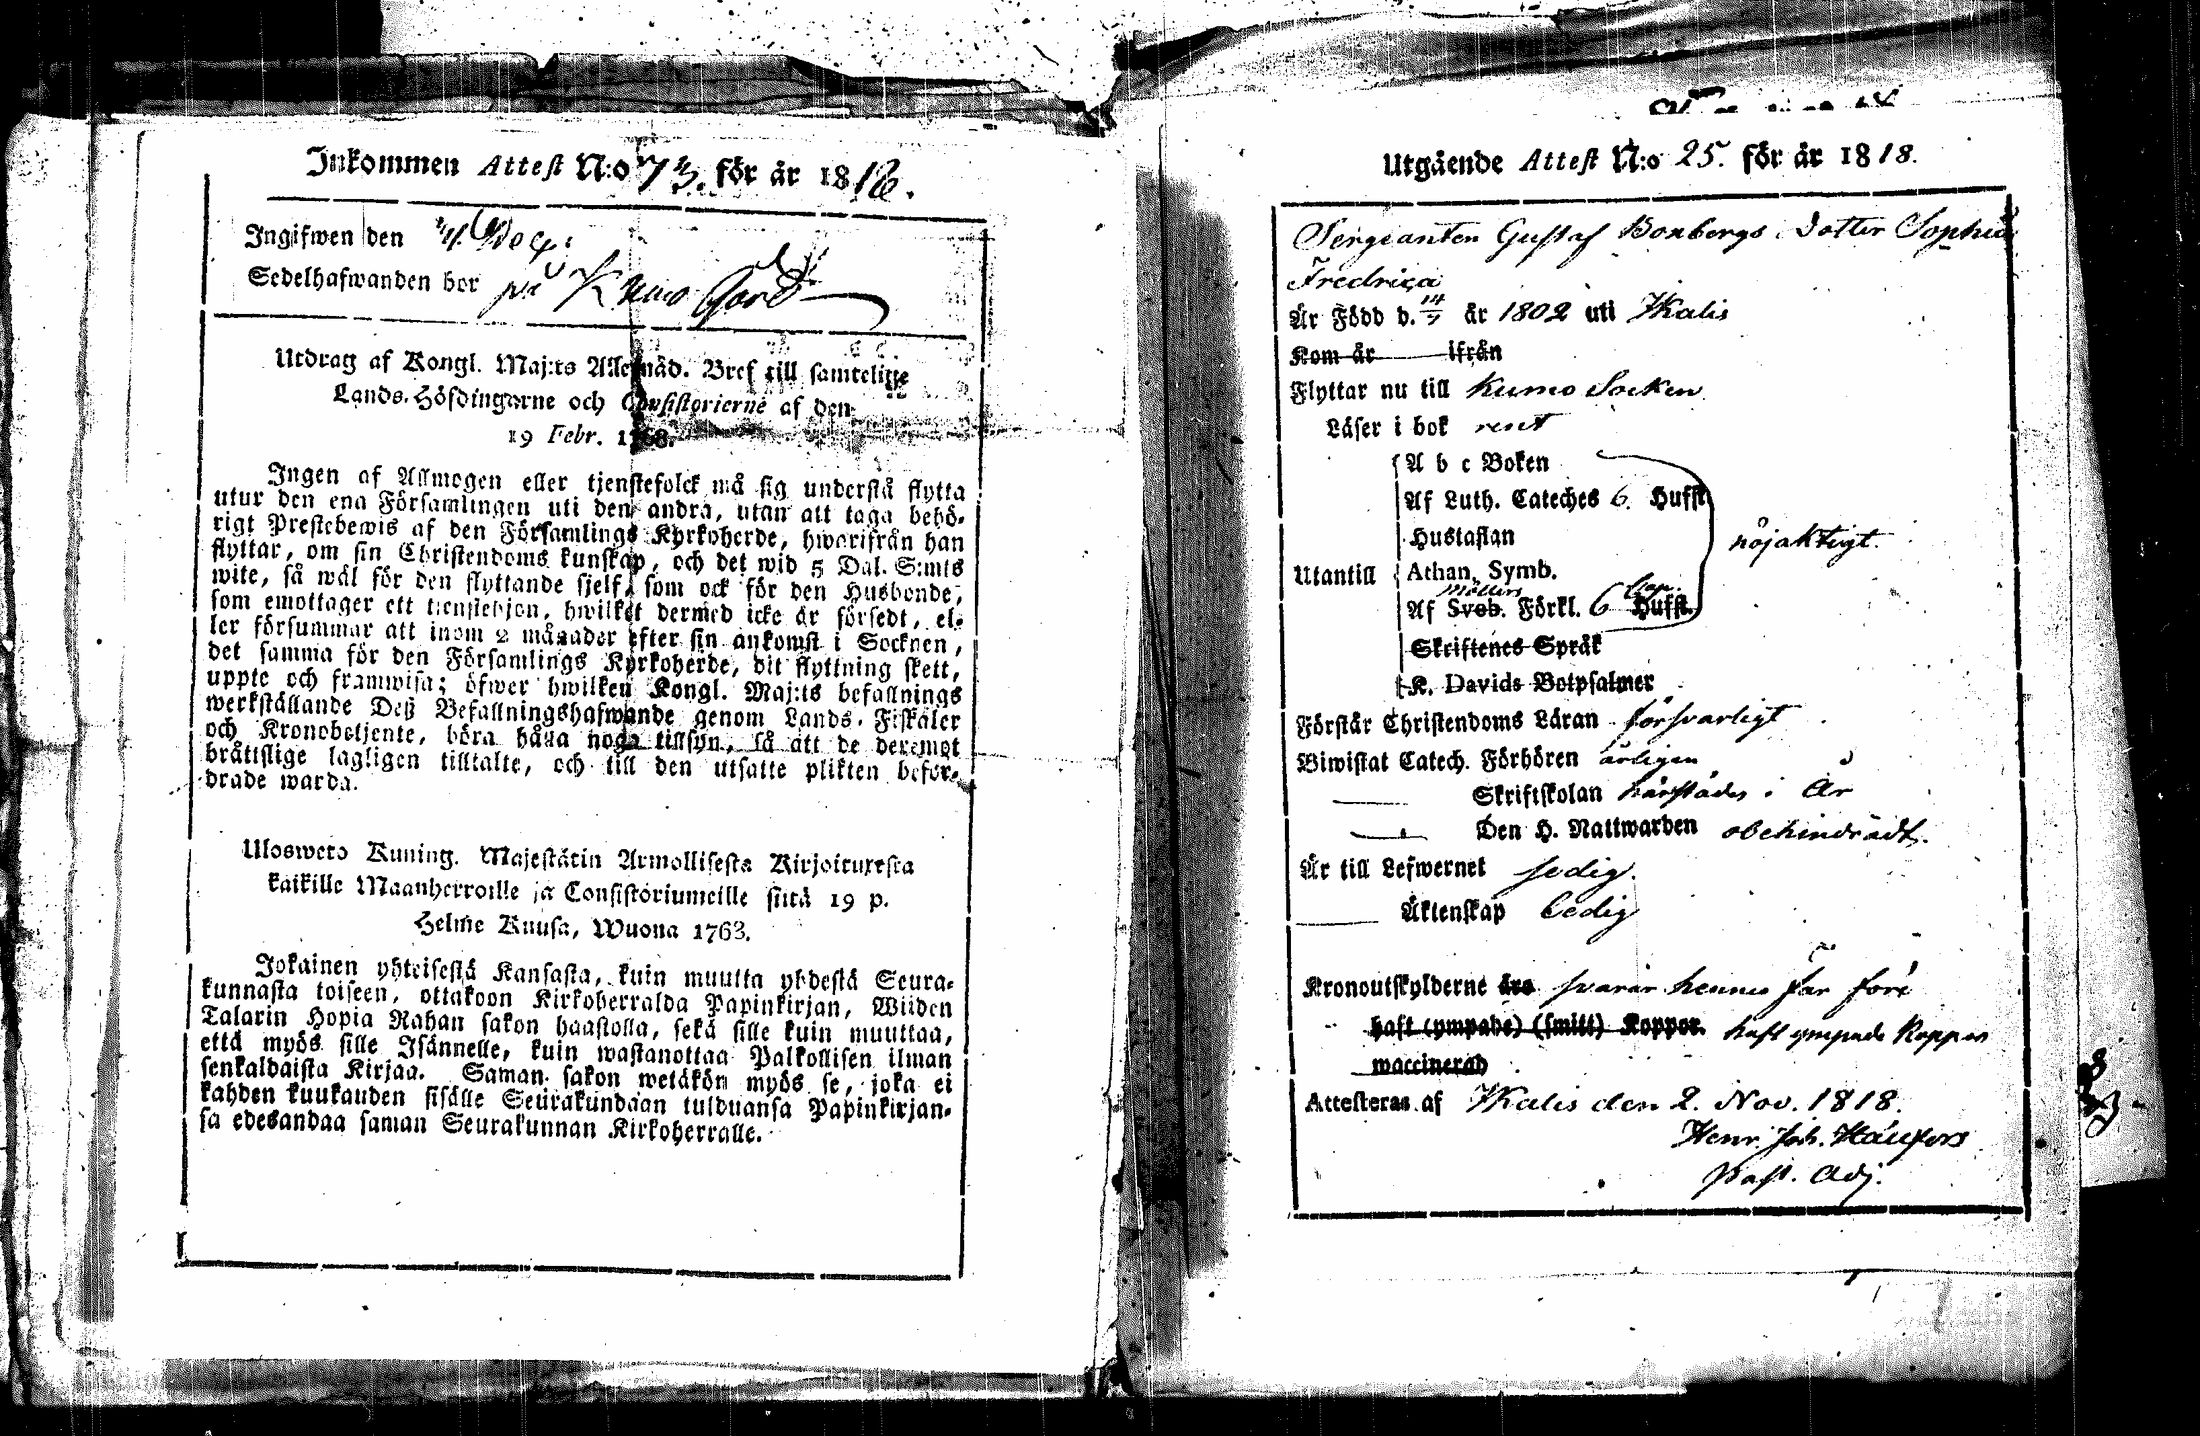 Inkommen Attest N:o 73. för år 1818.
Ingifwen den
Sedelhafwanden bor på Kumo Gård
Utdrag af Kongl. Maj:ts Allernåd. Bref till samtelige
Lands-Höfdingarne och Consistorierne af den
19 Febr. 1763.
Ingen af Allmogen eller tjenstefolck må sig understå flytta
utur den ena Församlingen uti den andra, utan att taga behö-
rigt Prestebewis af den Församlings Kyrkoherde, hwarifrån han
flyttar, om sin Christendoms kunskap, och det wid 5 Dal. S:mts
wite, så wäl för den flyttande sjelf, som ock för den Husbonde,
som emottager ett tjenstehjon, hwilket dermed icke är försedt, el-
ler försummar att inom 2 månader efter sin ankomst i Socknen,
det samma för den Församlings Kyrkoherde, dit flyttning skett,
uppte och framwisa; öfwer hwilken Kongl. Maj:ts befallnings
werkställande Deß Befallningshafwande genom Lands-Fiskaler
och Kronobetjente, böra hålla noga tillsyn, så att de deremot
bråttslige lagligen tilltalte, och till den utsatte plikten befor-
drade warda.
Ulosweto Kuning. Majestätin Armollisesta Kirjoituxesta
kaikille Maanherroille ja Consistoriumeille siitä 19 p.
Helme Kuusa, Wuona 1763.
Jokainen yhteisestä Kansasta, kuin muutta yhdestä Seura-
kunnasta toiseen, ottakoon Kirkoherralda Papinkirjan, Wiiden
Talarin Hopia Rahan sakon haastolla, sekä sille kuin muuttaa,
että myös sille Isännelle, kuin wastanottaa Palkollisen ilman
senkaldaista Kirjaa. Saman sakon wetäkön myös se, joka ei
kahden kuukauden sisälle Seurakundaan tulduansa Papinkirjan-
sa edesandaa saman Seurakunnan Kirkoherralle.
Utgående Attest N:o 25. för år 1818.
Sergeanten Gustaf Boxbergs Dotter Sophia
Fredrica
Är Född d. 14/7 år 1802 uti Ikalis
Kom år ifrån
Flyttar nu till Kumo Socken
Läser i bok rent
A b c Boken
Af Luth. Cateches 6. Hufst.
Hustaflan
nöjaktigt.
Utantill Athan. Symb.
Möllers Cap.
Af Sveb. Förkl. 6 Hufst.
Skriftenes Språk
K. Davids Botpsalmer
Förstår Christendoms Läran försvarligt
Biwistat Catech. Förhören årligen
Skriftskolan härstädes i År
Den H. Nattwarden obehindradt.
Är till Lefwernet sedig.
Äktenskap ledig
Kronoutskylderne äro svarar hennes Far före
haft (ympade) (smitt) Koppor. haft ympade Koppor
waccinerad
Attesteras af Ikalis den 2. Nov. 1818.
Henr. Joh.
Past. Adj.